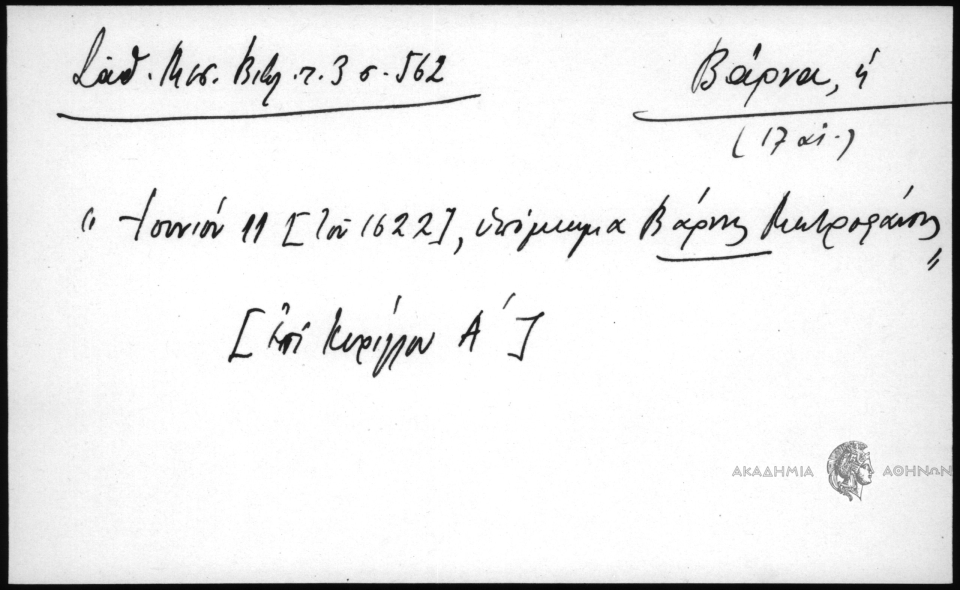 Σάθ. Μεσ. Βιβλ. τ. 3 σ. 562
Βάρνα, ἡ
(17 αἰ.)
" Ἰουνίου 11 [τοῦ 1622], ὑπόμνημα Βάρνης Μητροφάνης "
[ἐπὶ Κυρίλλου Α']
ΑΚΑΔΗΜΙΑ ΑΘΗΝΩΝ